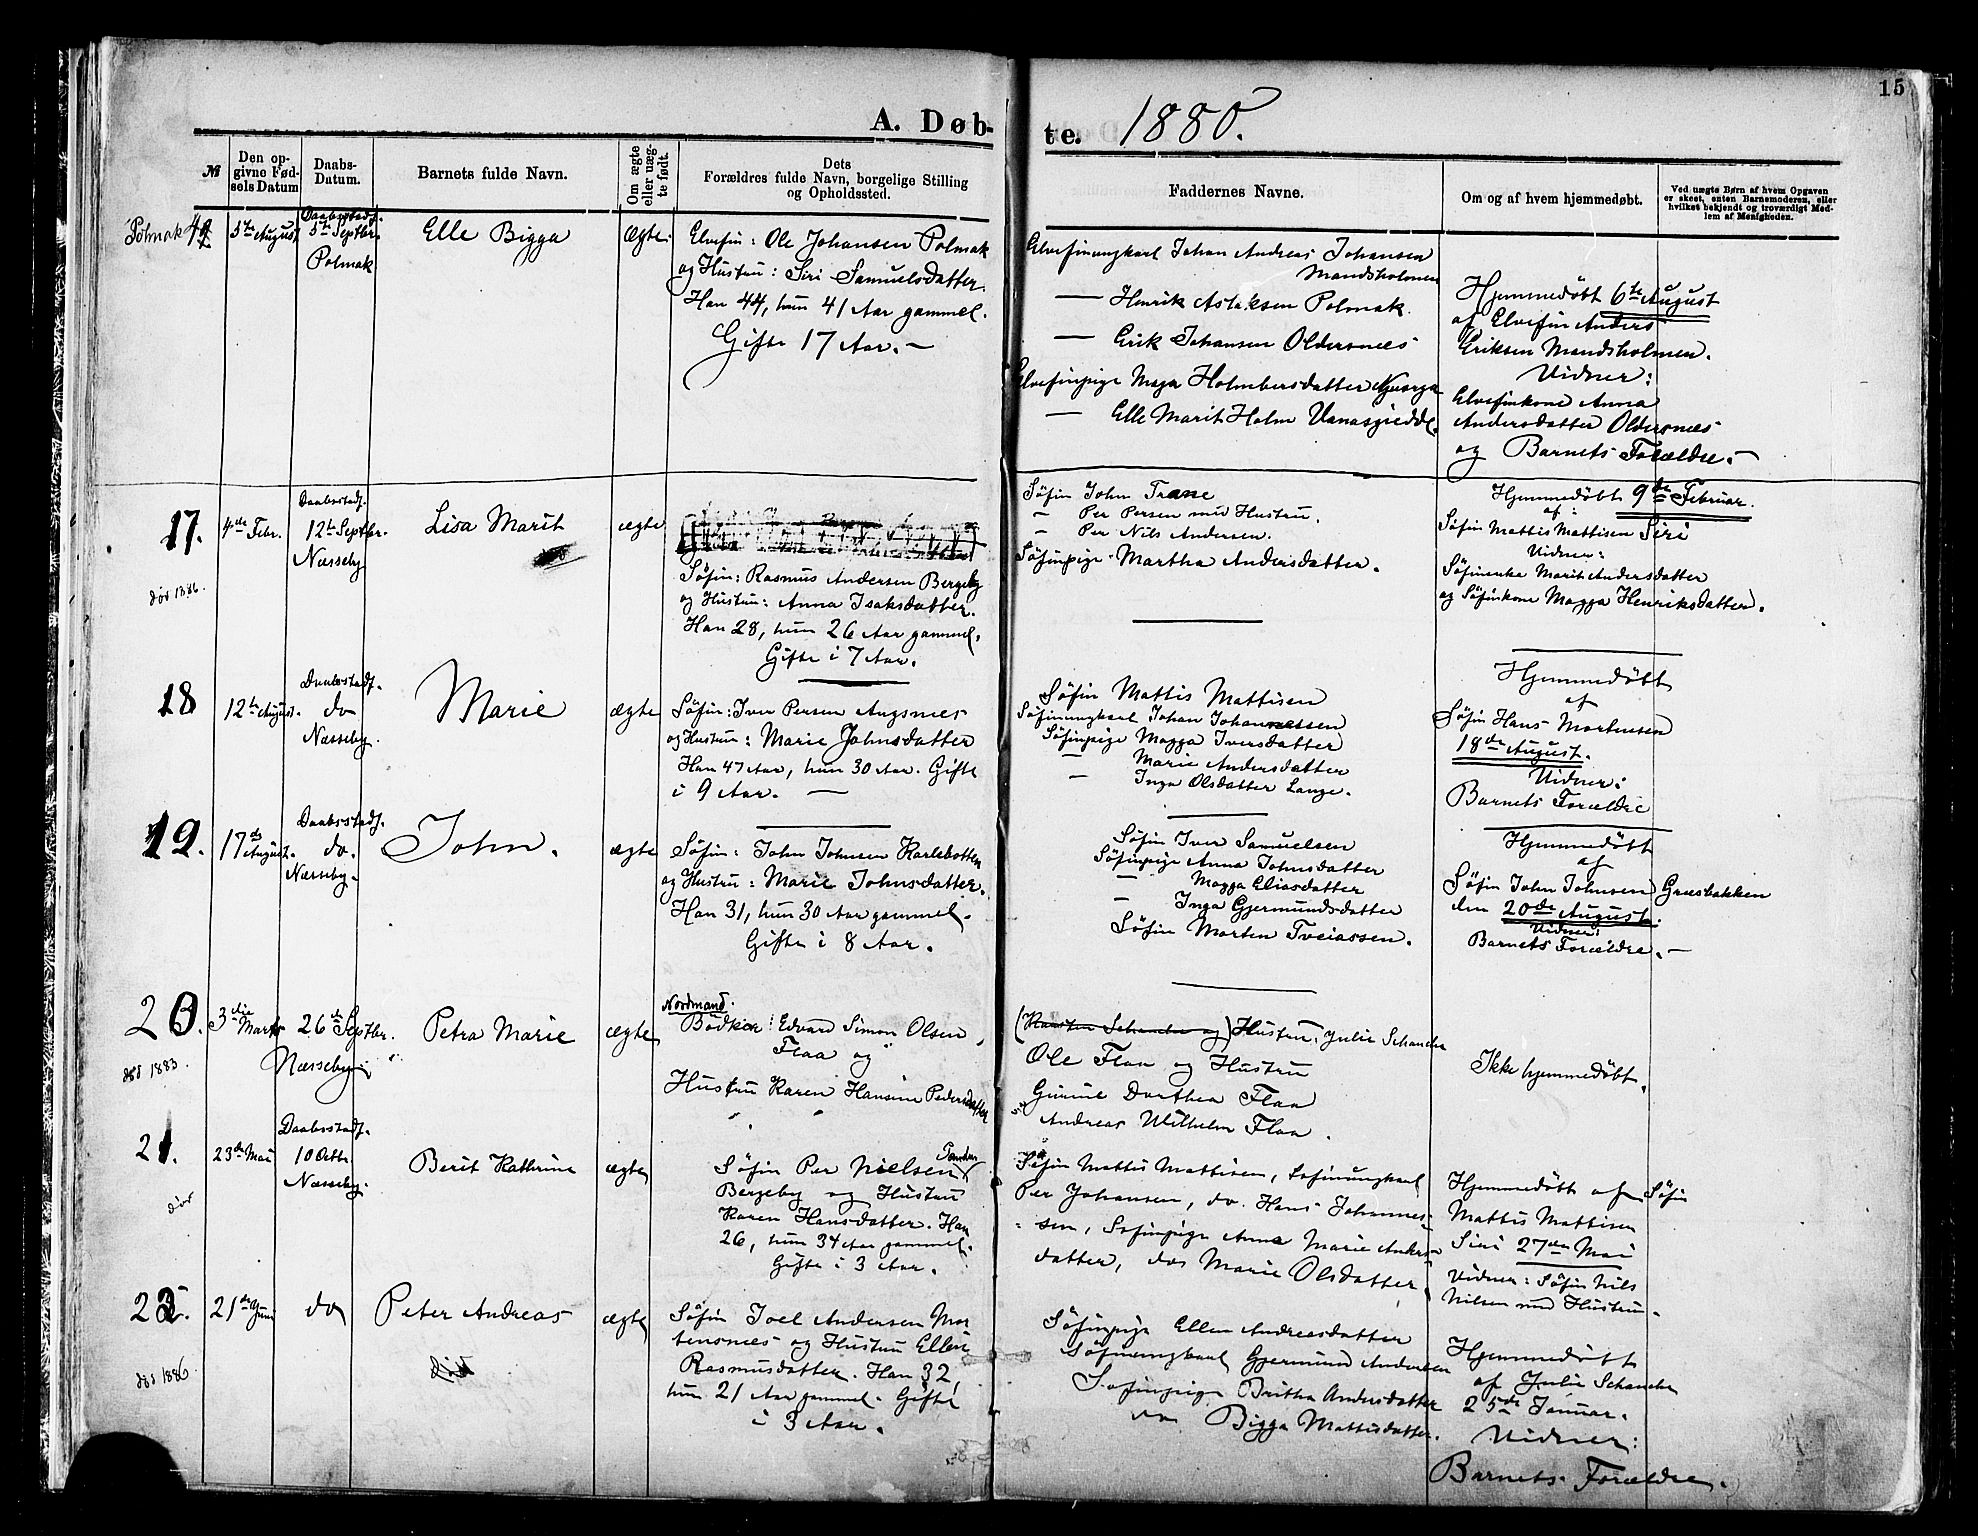 15
A. Døb-
te. 1880.
№
Den op-
givne Fød-
sels Datum
Daabs-
Datum.
Barnets fulde Navn.
Om ægte
eller uæg-
te født.
Dets
Forældres fulde Navn, borgelige Stilling
og Opholdssted.
Faddernes Navne.
Om og af hvem hjemmedøbt.
Ved uægte Børn af hvem Opgaven
er skeet, enten Barnemoderen, eller
hvilket bekjendt og troværdigt Med-
lem af Menigheden.
Polmak
5te August
Daabsstadf.
5te Septbr.
Polmak
Elle Bigga
Ægte
Elvefin: Ole Johansen Polmak
og Hustru: Siri Samuelsdatter.
Han 44, hun 41 Aar gammel.
Gifte 17 Aar. —
Elvefinungkarl Johan Andreas Johansen
Mandsholmen
— Henrik Aslaksen Polmak.
— Erik Johansen Oldersnes
Elvefinpige Maga Holmbersdatter
— Elle Marit Holm
Hjemmedøbt 6te August
af Elvefin Anders
Eriksen Mandsholmen.
Vidner:
Elvefinkone Anna
Andersdatter Oldersnes
og Barnets Forældre. —
17.
død 1886.
4de Febr.
Daabsstadf.
12te Septbr.
Næsseby
Lisa Marit
ægte
Søfin: Rasmus Andersen Bergeby
og Hustru: Anna Isaksdatter.
Han 28, hun 26 Aar gammel.
Gifte i 7 Aar.
Søfin John Trane
— Per Persen med Hustru.
— Per Nils Andersen.
Søfinpige Martha Andersdatter.
Hjemmedøbt 9de Februar.
af:
Søfin Mattis Mattisen Siri
Vidner:
Søfinenke Marit Andersdatter
og Søfinkone Magga Henriksdatter.
18
12te August.
Daabsstadf.
do
Næsseby.
Marie
ægte
Søfin: Iver Persen Angsnes
og Hustru: Marie Johnsdatter
Han 47 Aar, hun 30 Aar. Gifte
i 9 Aar. —
Søfin Mattis Mattisen
Søfinungkarl Johan Johannessen
Søfinpige Magga Iversdatter
— Marie Andersdatter
— Inga Olsdatter Lange.
Hjemmedøbt
af
Søfin Hans Mortensen
18de August.
Vidner:
Barnets Forældre
19.
17de August.
Daabsstadf.
do.
Næsseby.
John.
ægte
Søfin: John Johnsen Karlebotten
og Hustru: Marie Johnsdatter.
Han 31, hun 30 Aar gammel.
Gifte i 8 Aar.
Søfin Iver Samuelsen
Søfinpige Anna Johnsdatter
— Magga Eliasdatter
— Inga Gjermundsdatter
Søfin Morten Tveiassen.
Hjemmedøbt
af
Søfin John Johnsen Græsbakken
den 20de August.
Vidner:
Barnets Forældre. —
20.
død 1883.
3die Marts
26de Septbr.
Næsseby
Petra Marie
ægte
Nordmand.
Bødker: Edvard Simon Olsen
Flaa og
Hustru Karen Hansine Pedersdatter
(Karsten Schanche og) Hustru, Julie Schanche
Ole Flaa og Hustru
Gurine Dorthea Flaa
Andreas Wilhelm Flaa.
Ikke hjemmedøbt.
21.
23de Mai
Daabsstadf.
10 Octbr.
Næsseby.
Berit Kathrine
ægte
Søfin Per Nielsen
Bergeby og Hustru
Karen Hansdatter. Han
26, hun 34 Aar gammel.
Gifte i 3 Aar.
Søfin Mattis Mattisen, Søfinungkarl
Per Johansen, do. Hans Johannes-
sen, Søfinpige Anna Marie Anders-
datter, do Marie Olsdatter
Hjemmedøbt af Søfin
Mattis Mattisen
Siri 27de Mai
Vidner: Søfin Nils
Nilsen med Hustru.
22.
død 1886
21de Juni
do
Peter Andreas
død
ægte
Søfin Joel Andersen Mor
tensnes og Hustru Ellen
Rasmusdatter. Han 32,
hun 21 Aar gammel. Gifte
i 3 Aar.
Søfinpige Ellen Andreasdatter
Søfinungkarl Gjermund Andersen
Søfinpige Britha Andersdatter
do Bigga Mattisdatter.
Hjemmedøbt
af Julie Schanche
25de Januar.
Vidner:
Barnets Forældre.